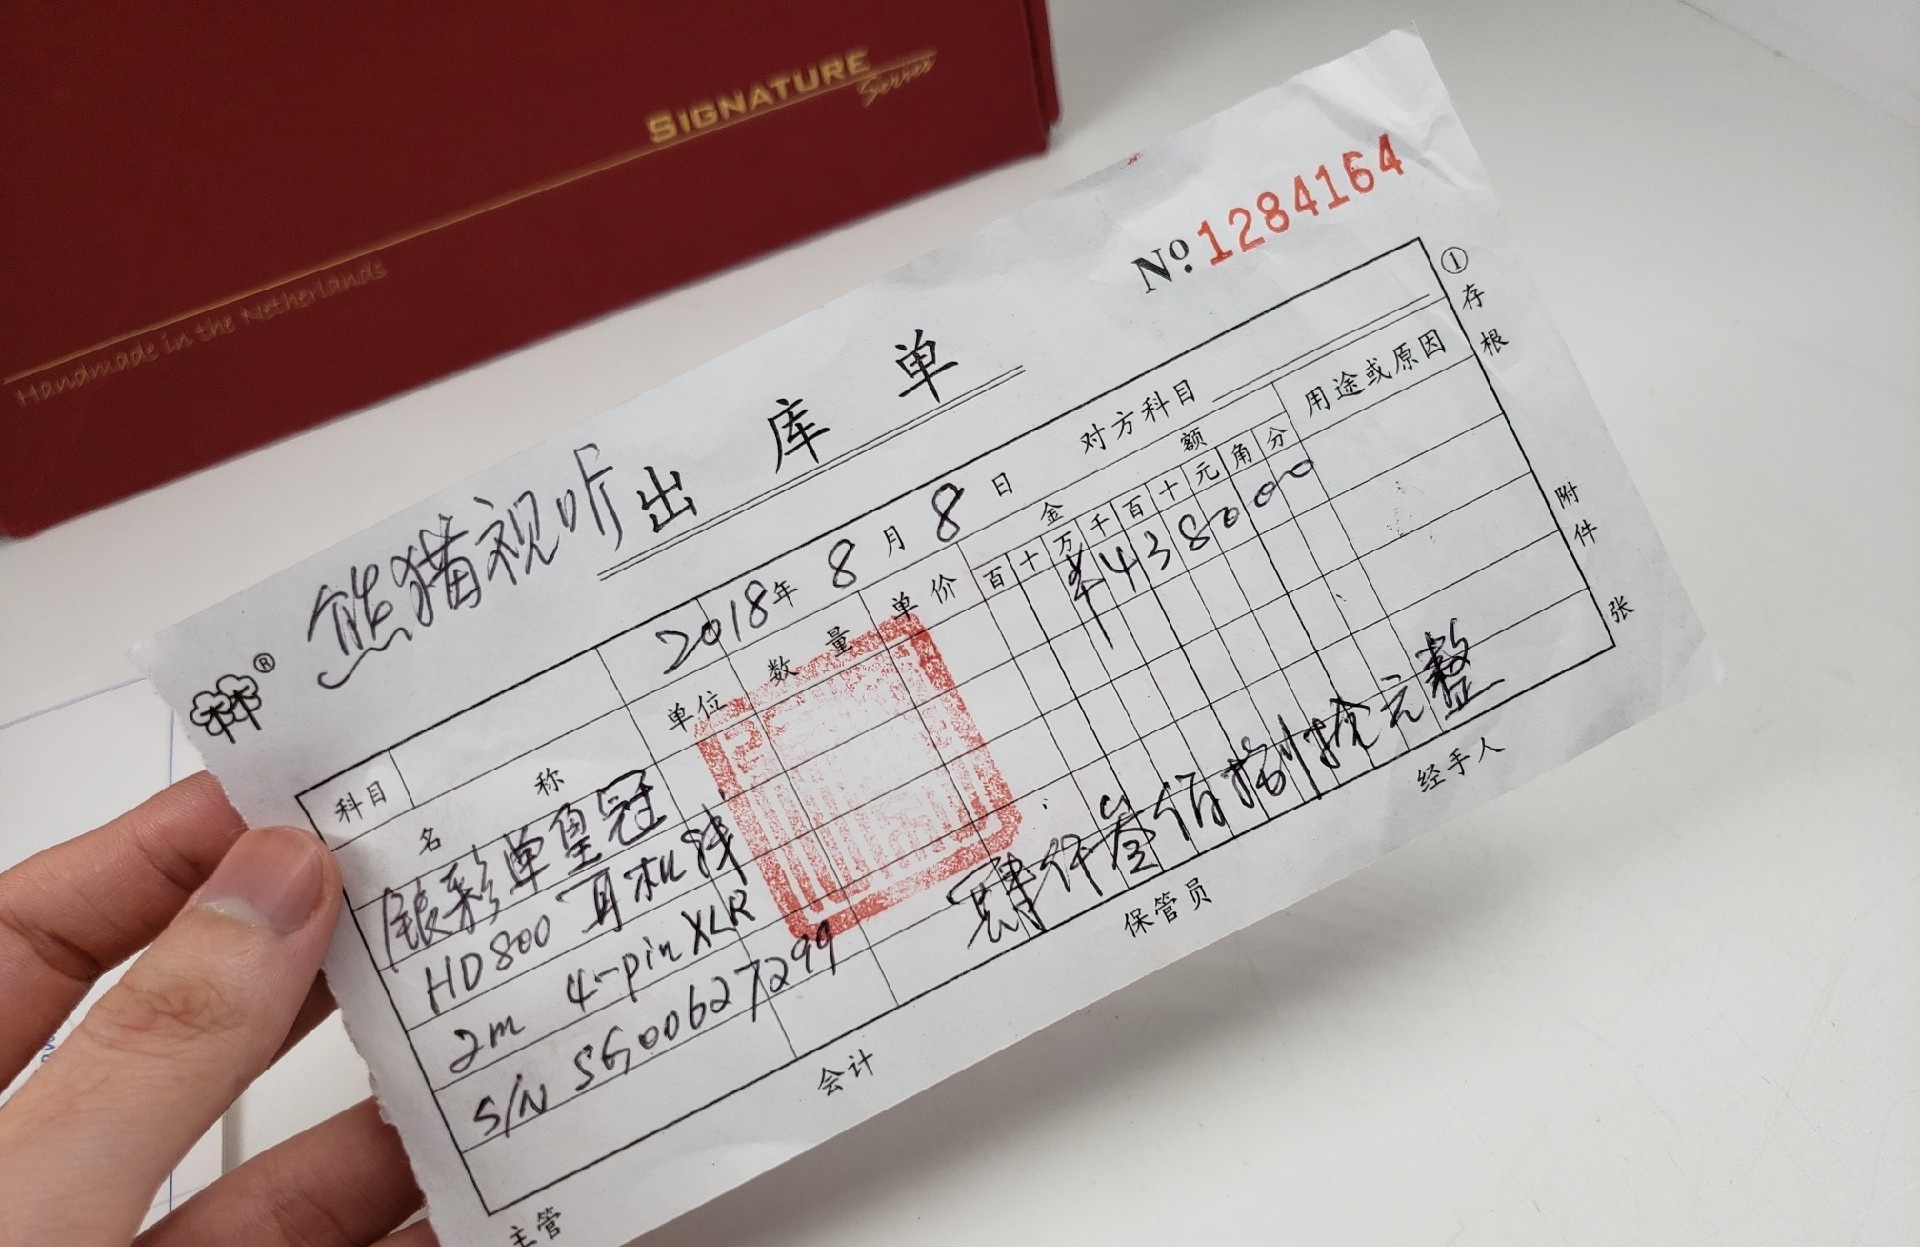 SIGNATURE
Series
Handmade in the Netherlands
№ 1284164
熊猫视听 出库单
®
2018年 8月 8日 对方科目
① 存根
科目 名称 单位 数量 单价 金额 用途或原因
百 十 万 千 百 十 元 角 分
银彩单皇冠 ¥438000
HD800 耳机线
2m 4-pin XLR
S/N SG00627299
肆仟叁佰捌拾元整
附件 张
主管 会计 保管员 经手人